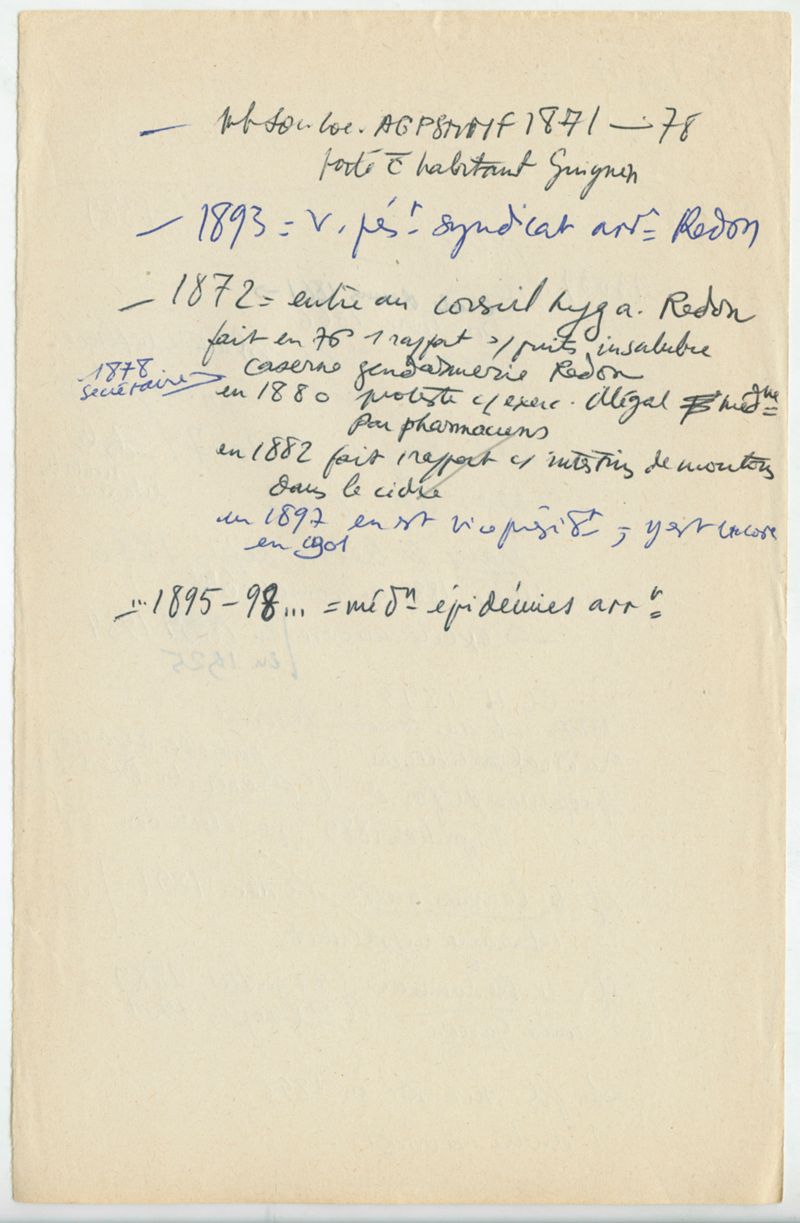 — mb Son loc. AGPSMMIF 1871 — 78
porté c̄ habitant Guignen
— 1893 = V. présᵗ syndicat arrᵗ Redon
— 1872 = entre au conseil hyg a. Redon
fait en 76 1 rapport s/ puits insalubre
caserne gendarmerie Redon
1878 secrétaire →
en 1880 proteste c/ exerc. illégal médⁿᵉ
par pharmaciens
en 1882 fait 1 rapport s/ intestins de moutons
dans le cidre
en 1897 en est vice présidᵗ ; y est encore
en 1901
— ... 1895-98... = médⁿ épidémies arrᵗ